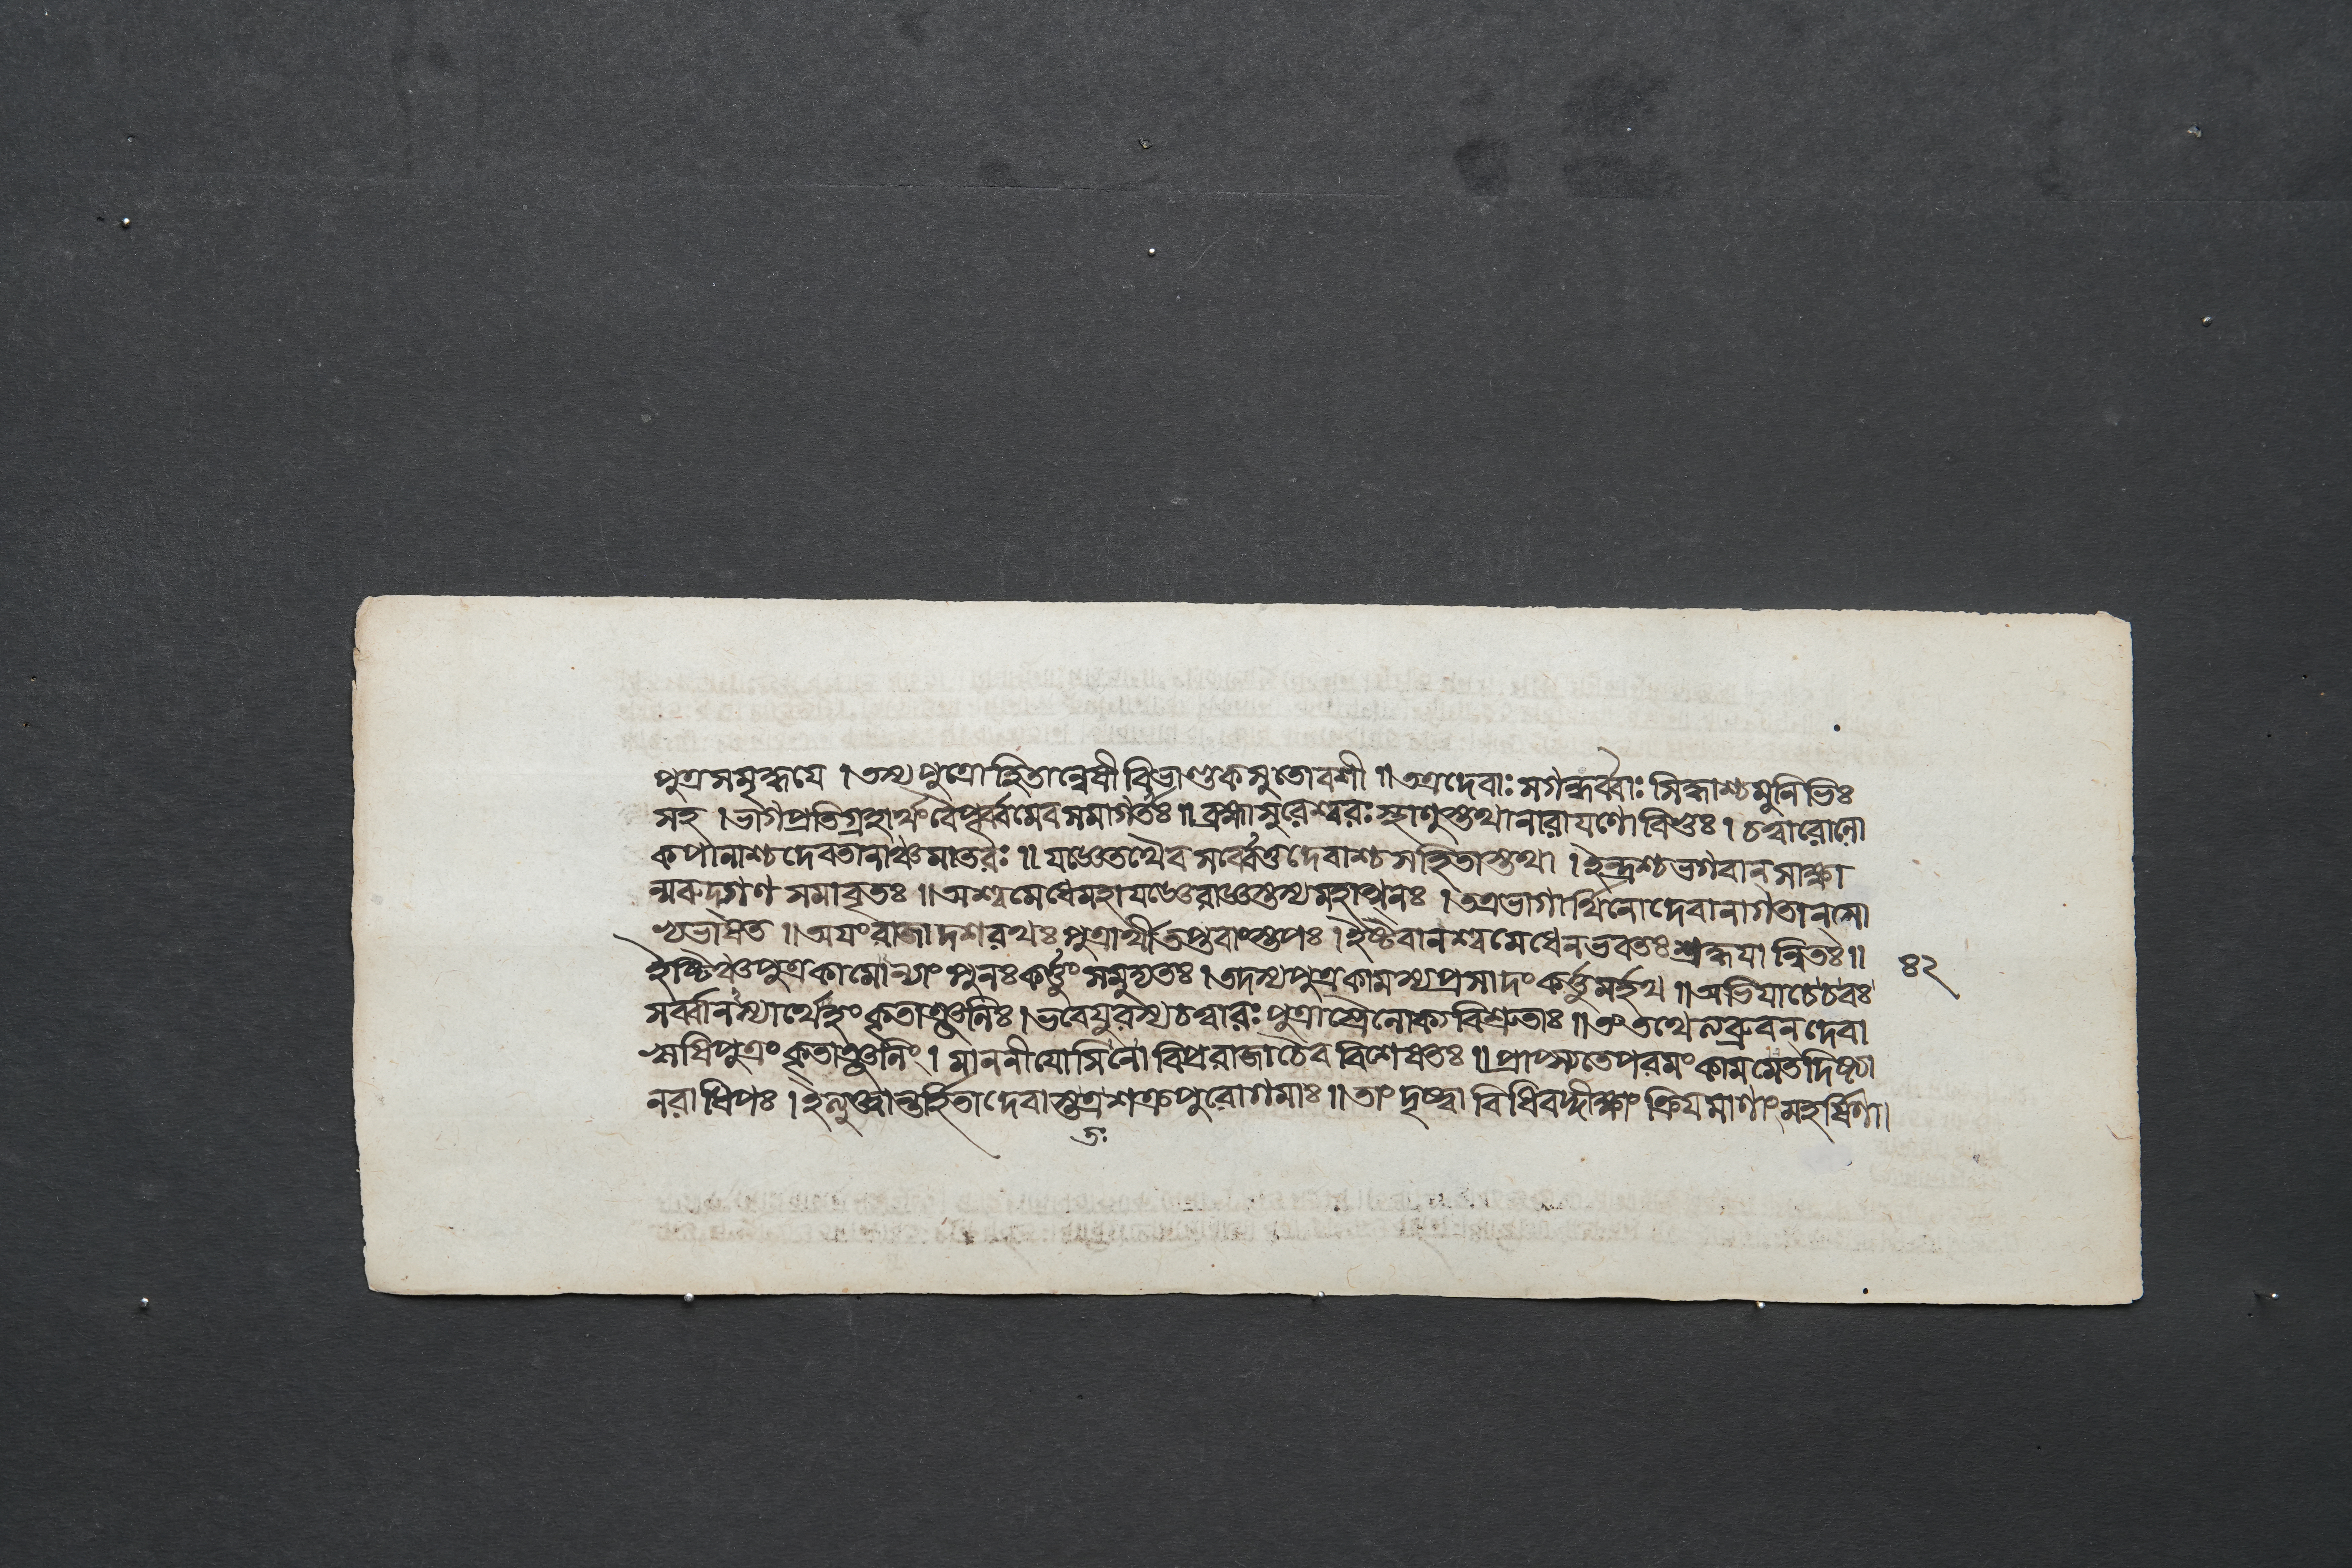 পুত্রসমৃদ্ধযে । তস্য পুত্রোহিতান্বেষী বিভাণ্ডকসুতোবশী ॥ তত্রদেবাঃ সগন্ধর্ব্বাঃ সিদ্ধাশ্চমুনিভিঃ
সহ । ভাগপ্রতিগ্রহার্থংবৈপূর্ব্বমেবসমাগতাঃ ॥ ব্রহ্মাসুরেশ্বরঃস্থাণুস্তথানারাযণোবিভুঃ । চত্বারোলো
কপালাশ্চদেবতানাঞ্চমাতরঃ ॥ যজ্ঞেতথৈব সর্ব্বেতুদেবাশ্চসহিতাস্তথা । ইন্দ্রশ্চভগবান্সাক্ষা
ন্মরুদ্গণ সমাবৃতঃ ॥ অশ্বমেধেমহাযজ্ঞেরাজ্ঞস্তস্যমহাত্মনঃ । তত্রভাগার্থিনোদেবানাগতান্সো
ভ্যভাষত ॥ অযংরাজাদশরথঃপুত্রার্থীতপ্তবাংস্তপঃ । ইষ্টবানশ্বমেধেনভবতঃশ্রদ্ধযান্বিতঃ ॥
ইষ্টিঞ্চপুত্রকামোন্যাং পুনঃকর্ত্তুং সমুদ্যতঃ । তদস্যপুত্রকামস্যপ্রসাদংকর্ত্তুমর্হথ ॥ অভিযাচেচবঃ
সর্ব্বানস্যার্থেহংকৃতাঞ্জলিঃ । ভবেযুরস্যচত্বারঃপুত্রাস্ত্রৈলোক্যবিশ্রুতাঃ ॥ তং তথেত্যব্রুবন্দেবা
ঋষিপুত্রং কৃতাঞ্জলিং । মাননীযোসিনো বিপ্ররাজাচৈব বিশেষতঃ ॥ প্রাপ্স্যতেপরমংকামমেতদিষ্ট্যা
নরাধিপঃ । ইত্যুক্ত্বান্তর্হিতাদেবাস্তত্রশক্রপুরোগমাঃ ॥ তাং দৃষ্ট্বা বিধিবদ্দীক্ষাং ক্রিযমাণাংমহর্ষিণা।
তঃ
৪২